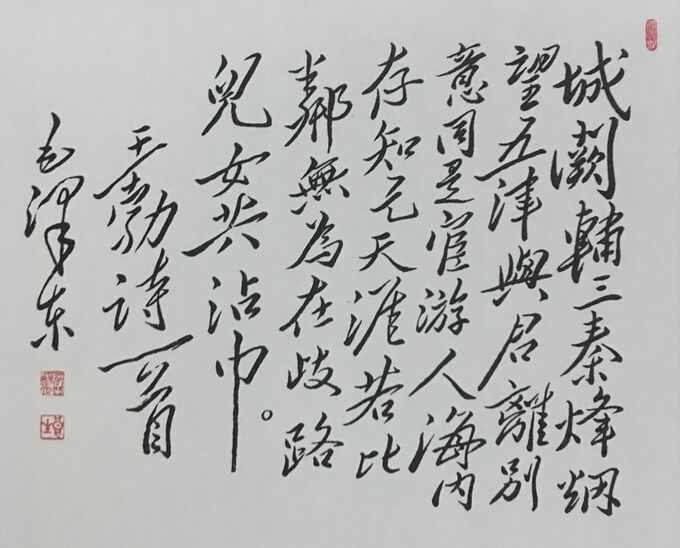 城闕輔三秦烽烟
望五津與君離别
意同是宦游人海内
存知己天涯若比
鄰無為在歧路
兒女共沾巾。
王勃诗一首
毛泽东